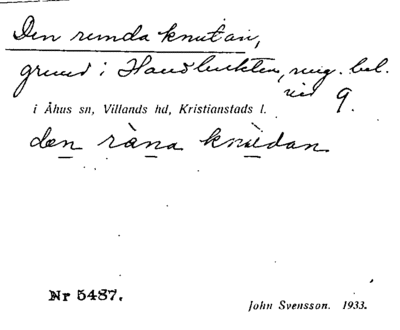 Den runda knutan,
grund i Handbukten, ung. bel.
vid 9.
i Åhus sn, Villands hd, Kristianstads l.
den råna knùdan
Nr 5487.
John Svensson. 1933.